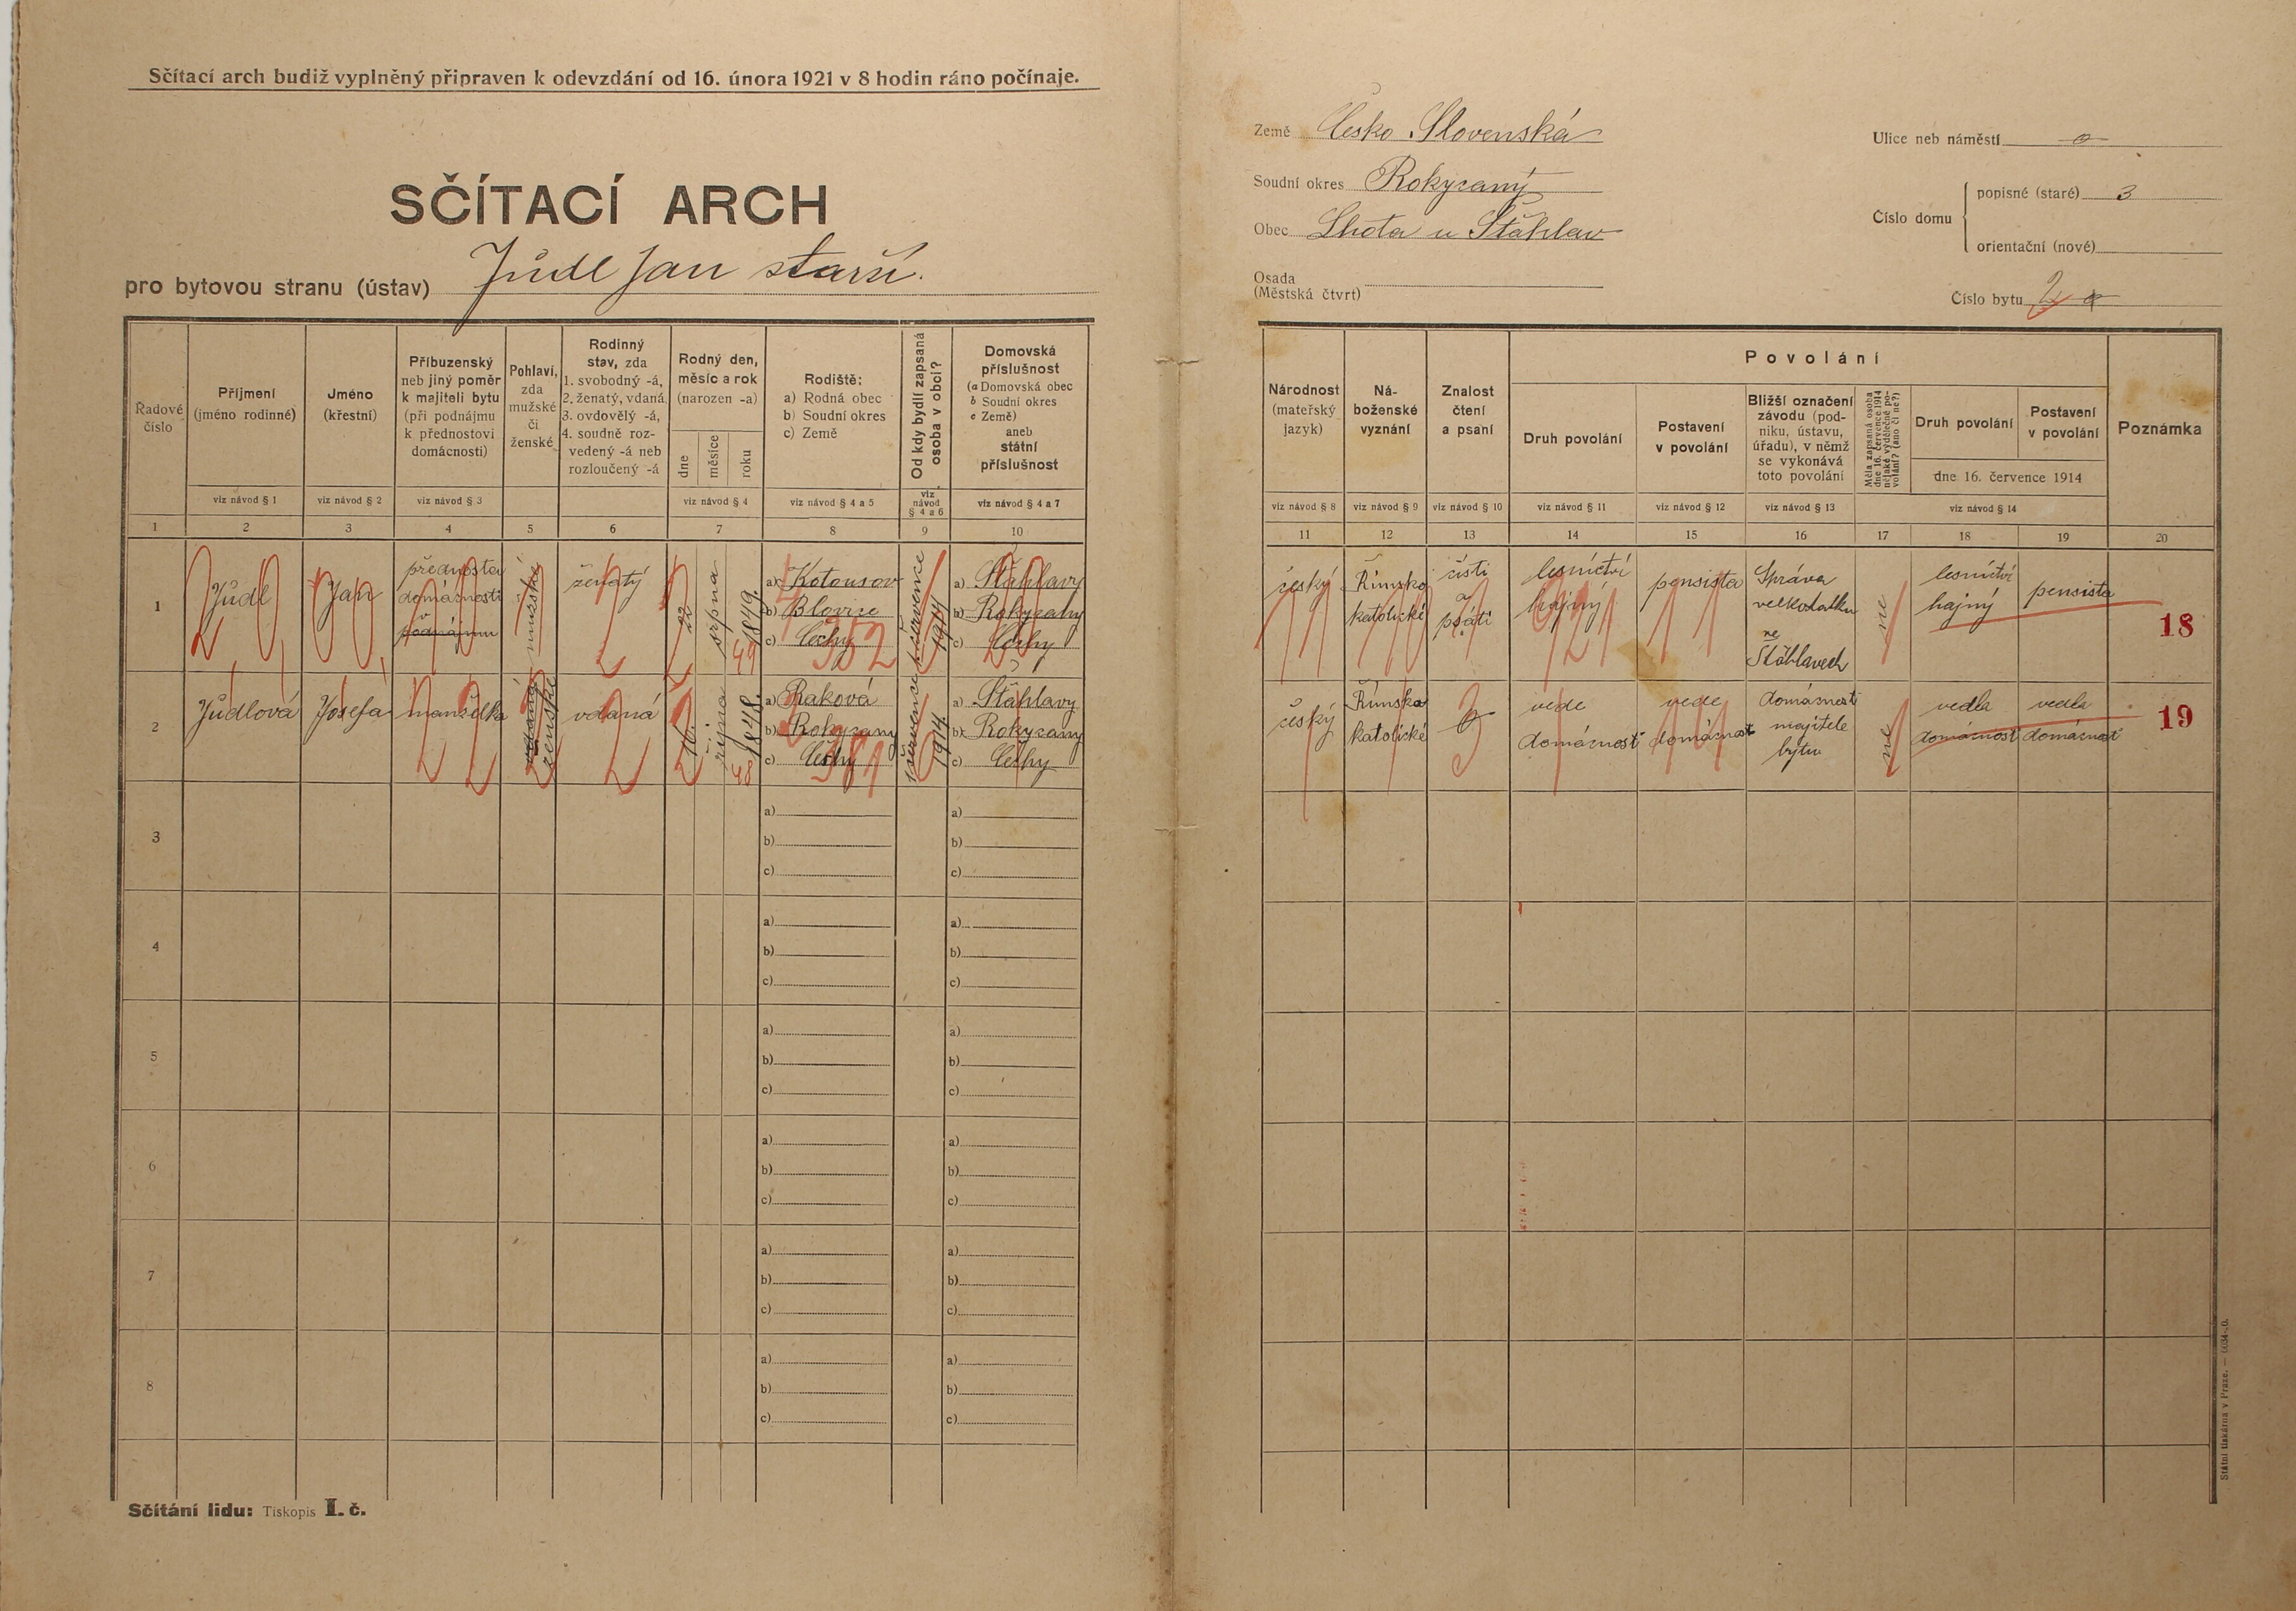 Sčítací arch budiž vyplněný připraven k odevzdání od 16. února 1921 v 8 hodin ráno počínaje.
SČÍTACÍ ARCH
pro bytovou stranu (ústav) Jůdl Jan starší.
Země Česko Slovenská
Soudní okres Rokycaný
Obec Lhota u Šťáhlav
Osada
(Městská čtvrt)
Ulice neb náměstí
Číslo domu
popisné (staré) 3
orientační (nové)
Číslo bytu 2
Řadové
číslo
1
Příjmení
(jméno rodinné)
viz návod § 1
2
Jméno
(křestní)
viz návod § 2
3
Příbuzenský
neb jiný poměr
k majiteli bytu
(při podnájmu
k přednostovi
domácnosti)
viz návod § 3
4
Pohlaví,
zda
mužské
či
ženské
5
Rodinný
stav, zda
1. svobodný -á,
2. ženatý, vdaná
3. ovdovělý -á,
4. soudně roz-
vedený -á neb
rozloučený -á
6
Rodný den,
měsíc a rok
(narozen -a)
dne
měsíce
roku
viz návod § 4
7
Rodiště:
a) Rodná obec
b) Soudní okres
c) Země
viz návod § 4 a 5
8
Od kdy bydlí zapsaná
osoba v obci?
viz
návod
§ 4 a 6
9
Domovská
příslušnost
(a Domovská obec
b Soudní okres
c Země)
aneb
státní
příslušnost
viz návod § 4 a 7
10
Národnost
(mateřský
jazyk)
viz návod § 8
11
Ná-
boženské
vyznání
viz návod § 9
12
Znalost
čtení
a psaní
viz návod § 10
13
Povolání
Druh povolání
viz návod § 11
14
Postavení
v povolání
viz návod § 12
15
Bližší označení
závodu (pod-
niku, ústavu,
úřadu), v němž
se vykonává
toto povolání
viz návod § 13
16
Měla zapsaná osoba
dne 16. července 1914
nějaké výdělečné po-
volání? (ano či ne?)
17
Druh povolání
18
Postavení
v povolání
19
dne 16. července 1914
viz návod § 14
Poznámka
20
1
Jůdl
Jan
přednosta
domácnosti
v
podnájmu
mužské
ženatý
22
srpna
1849.
49
a) Kotousov
b) Blovice
c) Čechy
352
července
1914
a) Šťáhlavy
b) Rokycany
c) Čechy
český
Římsko
katolické
čísti
a
psáti
lesnictví
hajný
pensista
Správa
velkostatku
ve
Šťáhlavech
ne
lesnictví
hajný
pensista
18
2
Jůdlová
Josefa
manželka
vdaná
ženské
vdaná
16.
října
1848.
48
a) Raková
b) Rokycany
c) Čechy
381
července
1914.
a) Šťáhlavy
b) Rokycany
c) Čechy
český
Římska
katolické
vede
domácnost
vede
domácnost
domácnost
majitele
bytu
ne
vedla
domácnost
vedla
domácnost
19
3
a)
b)
c)
a)
b)
c)
4
a)
b)
c)
a)
b)
c)
5
a)
b)
c)
a)
b)
c)
6
a)
b)
c)
a)
b)
c)
7
a)
b)
c)
a)
b)
c)
8
a)
b)
c)
a)
b)
c)
Sčítání lidu: Tiskopis I. č.
Státní tiskárna v Praze.